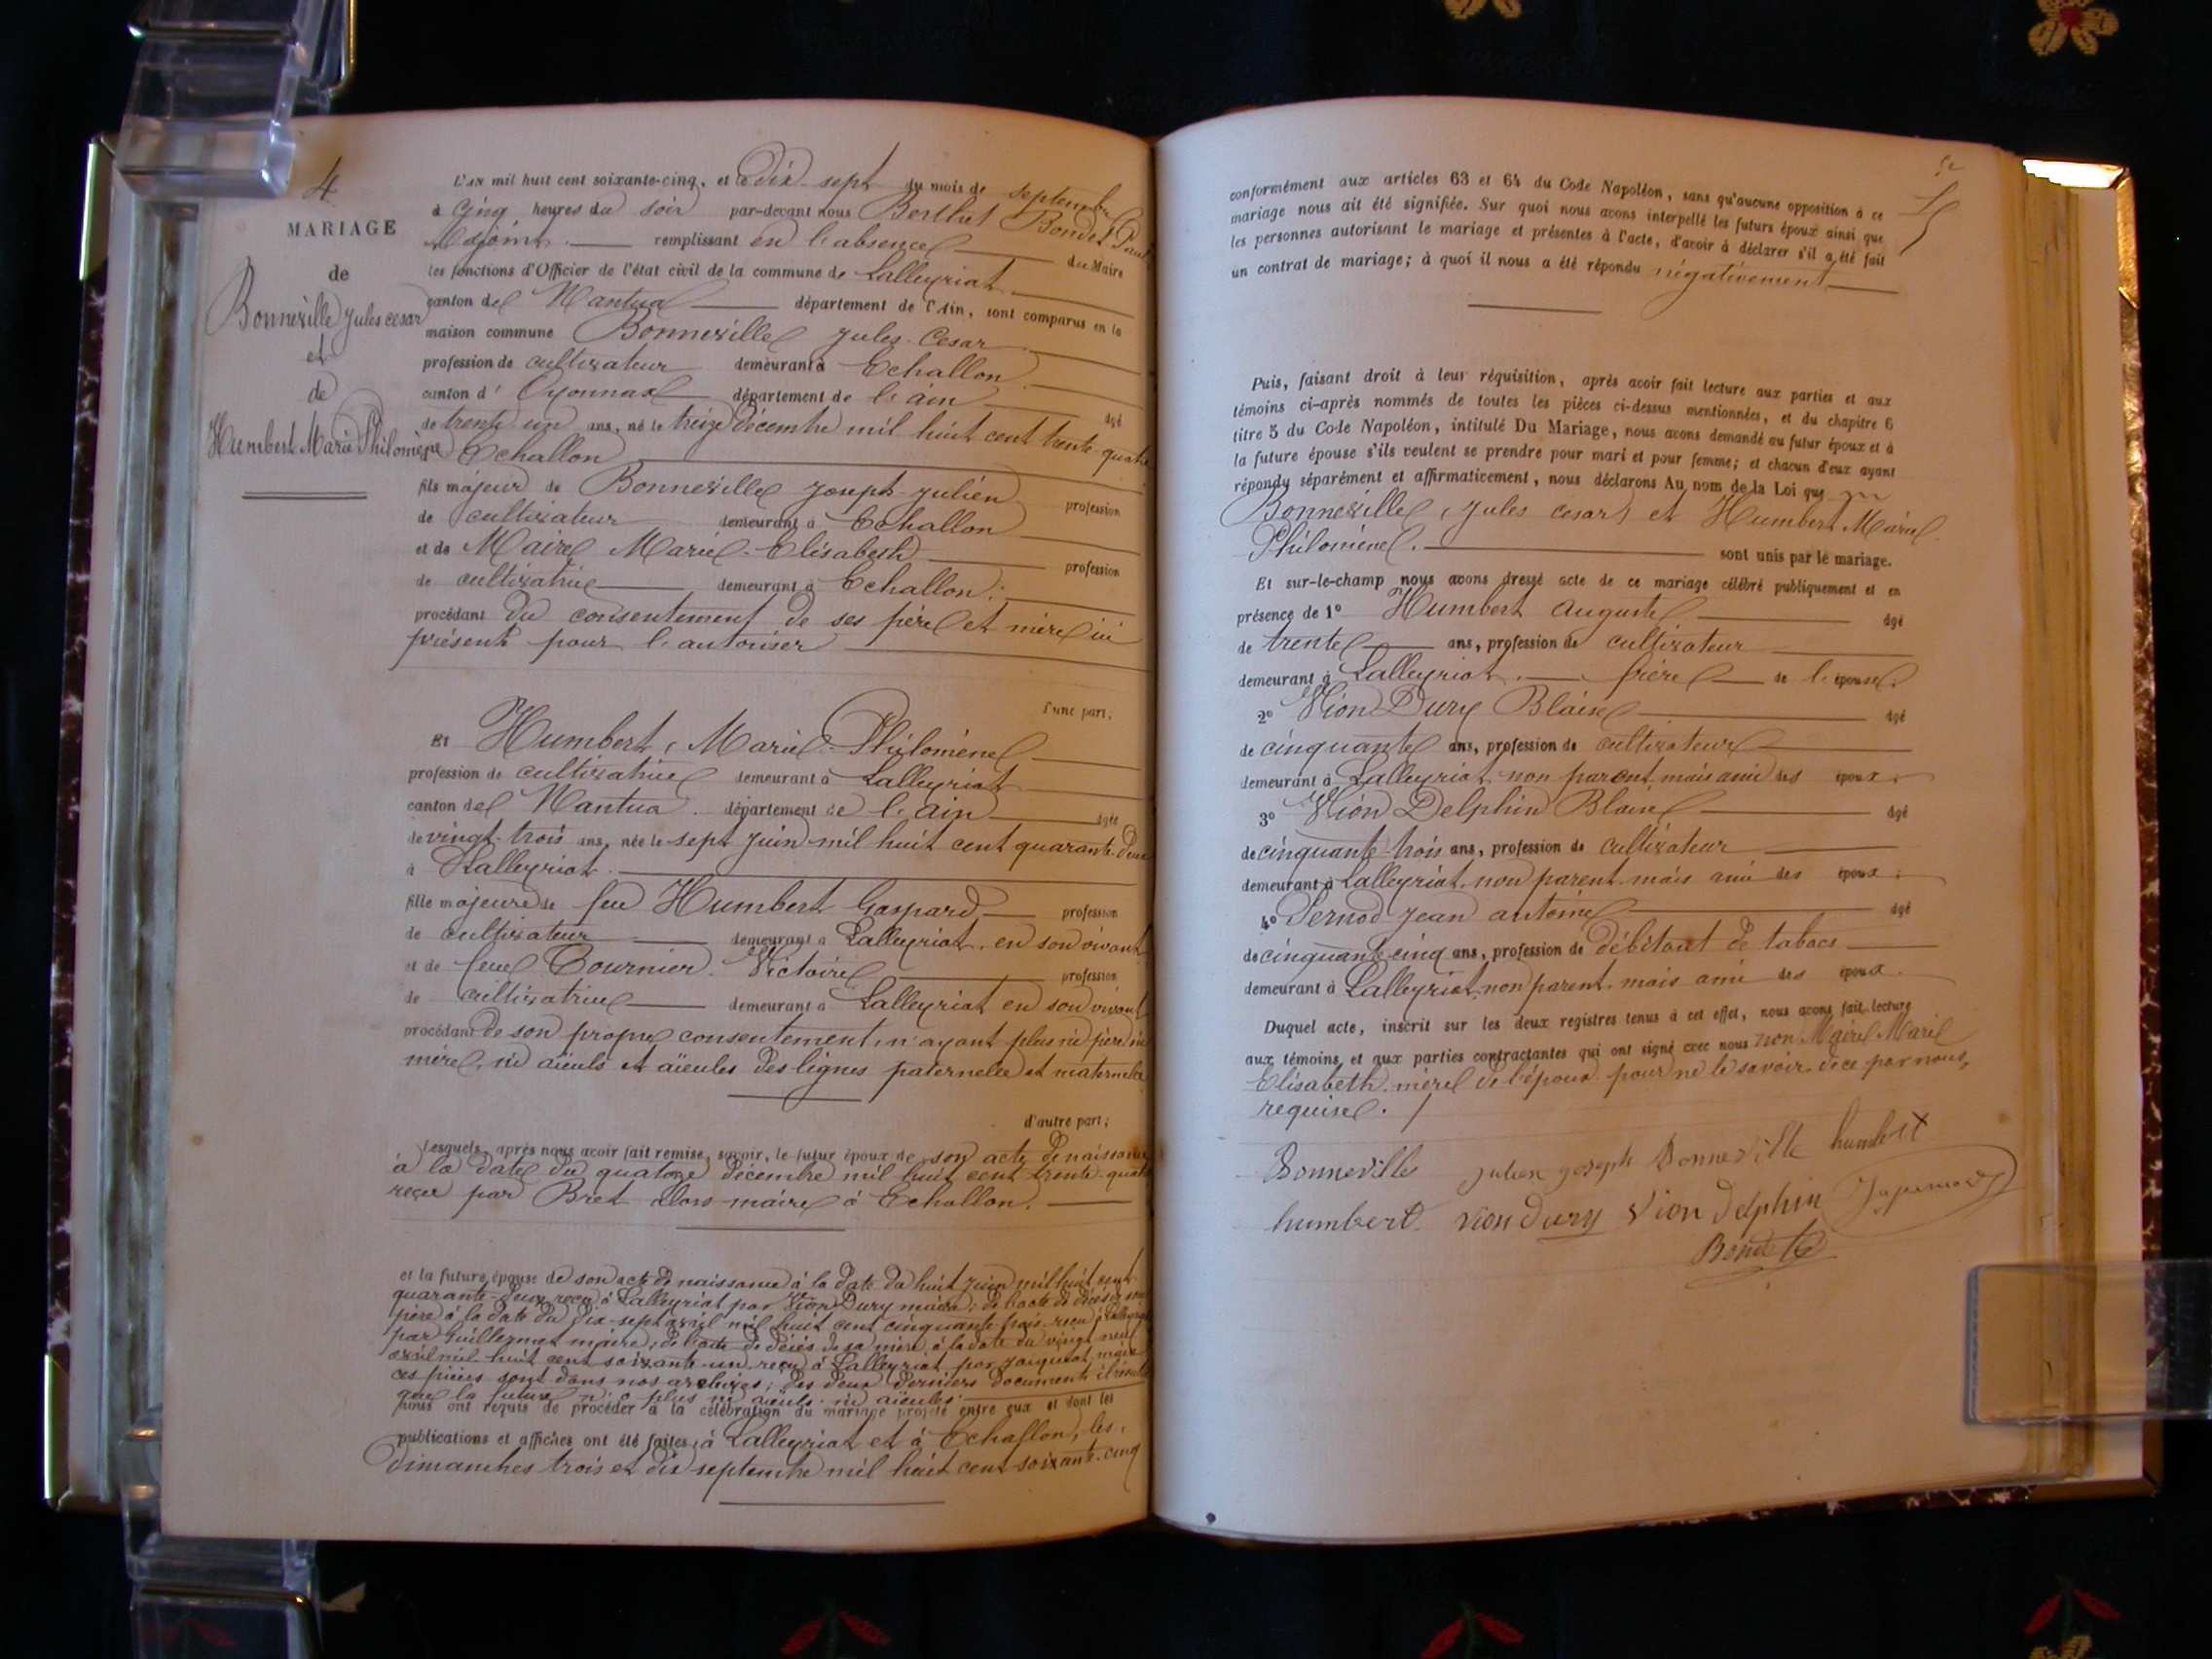 4
MARIAGE
de
Bonneville Jules Cesar
et
de
Humbert Marie Philomène
L'AN mil huit cent soixante-cinq, et le dix-sept du mois de septembre
à cinq heures du soir par-devant nous Berthet Bondet Paul
Adjoint remplissant en l'absence du Maire
les fonctions d'Officier de l'état civil de la commune de Lalleyriat
canton de Nantua département de l'Ain, sont comparus en la
maison commune Bonneville Jules Cesar
profession de cultivateur demeurant à Echallon
canton d' Oyonnax département de l'ain âgé
de trente un ans, né le treize décembre mil huit cent trente-quatre
Echallon
fils majeur de Bonneville Joseph-Julien profession
de cultivateur demeurant à Echallon
et de Maire Marie-Elisabeth profession
de cultivatrice demeurant à Echallon;
procédant du consentement de ses père et mère ici
présents pour l'autoriser
d'une part;
Et Humbert, Marie-Philomène
profession de cultivatrice demeurant à Lalleyriat
canton de Nantua département de l'ain âgée
de vingt-trois ans, née le sept juin mil huit cent quarante-deux
à Lalleyriat
fille majeure de feu Humbert Gaspard, profession
de cultivateur demeurant à Lalleyriat, en son vivant
et de feue Tournier Victoire profession
de cultivatrice demeurant à Lalleyriat en son vivant
procédant de son propre consentement, n'ayant plus ni père ni
mère, ni aïeuls et aïeules des lignes paternelle et maternelle
d'autre part;
Lesquels, après nous avoir fait remise, savoir, le futur époux de son acte de naissance
à la date du quatorze décembre mil huit cent trente-quatre
reçu par Bret alors maire à Echallon.
et la future épouse de son acte de naissance à la date du huit juin mil huit cent
quarante-deux reçu à Lalleyriat par Vion Dury maire; de l'acte de décès de son
père à la date du dix-sept avril mil huit cent cinquante-trois reçu à Lalleyriat
par Guillermet maire; de l'acte de décès de sa mère à la date du vingt neuf
avril mil huit cent soixante-un reçu à Lalleyriat par Jacquiot, maire
ces pièces sont dans nos archives; des deux derniers documents il résulte
que la future n'a plus ni aïeuls ni aïeules
Nous ont requis de procéder à la célébration du mariage projeté entre eux et dont les
publications et affiches ont été faites, à Lalleyriat et à Echallon, les
dimanches trois et dix septembre mil huit cent soixante-cinq
5
conformément aux articles 63 et 64 du Code Napoléon, sans qu'aucune opposition à ce
mariage nous ait été signifiée. Sur quoi nous avons interpellé les futurs époux ainsi que
les personnes autorisant le mariage et présentes à l'acte, d'avoir à déclarer s'il a été fait
un contrat de mariage; à quoi il nous a été répondu négativement
Puis, faisant droit à leur réquisition, après avoir fait lecture aux parties et aux
témoins ci-après nommés de toutes les pièces ci-dessus mentionnées, et du chapitre 6
titre 5 du Code Napoléon, intitulé Du Mariage, nous avons demandé au futur époux et à
la future épouse s'ils veulent se prendre pour mari et pour femme; et chacun d'eux ayant
répondu séparément et affirmativement, nous déclarons Au nom de la Loi que
Bonneville (Jules cesar) et Humbert Marie
Philomène. sont unis par le mariage.
Et sur-le-champ nous avons dressé acte de ce mariage célébré publiquement et en
présence de 1° Humbert Auguste âgé
de trente ans, profession de cultivateur
demeurant à Lalleyriat. frère de l'épouse.
2° Vion Dury Blaise âgé
de cinquante ans, profession de cultivateur
demeurant à Lalleyriat non parent mais ami des époux.
3° Vion Delphin Blaise âgé
de cinquante-trois ans, profession de cultivateur
demeurant à Lalleyriat, non parent mais ami des époux.
4° Pernod Jean antoine âgé
de cinquante-cinq ans, profession de débitant de tabacs
demeurant à Lalleyriat, non parent, mais ami des époux.
Duquel acte, inscrit sur les deux registres tenus à cet effet, nous avons fait lecture
aux témoins et aux parties contractantes qui ont signé avec nous non Maire Marie
Elisabeth mère de l'époux pour ne le savoir de ce par nous
requise.
Bonneville Julien Joseph Bonneville humbert
humbert Vion Dury Vion Delphin